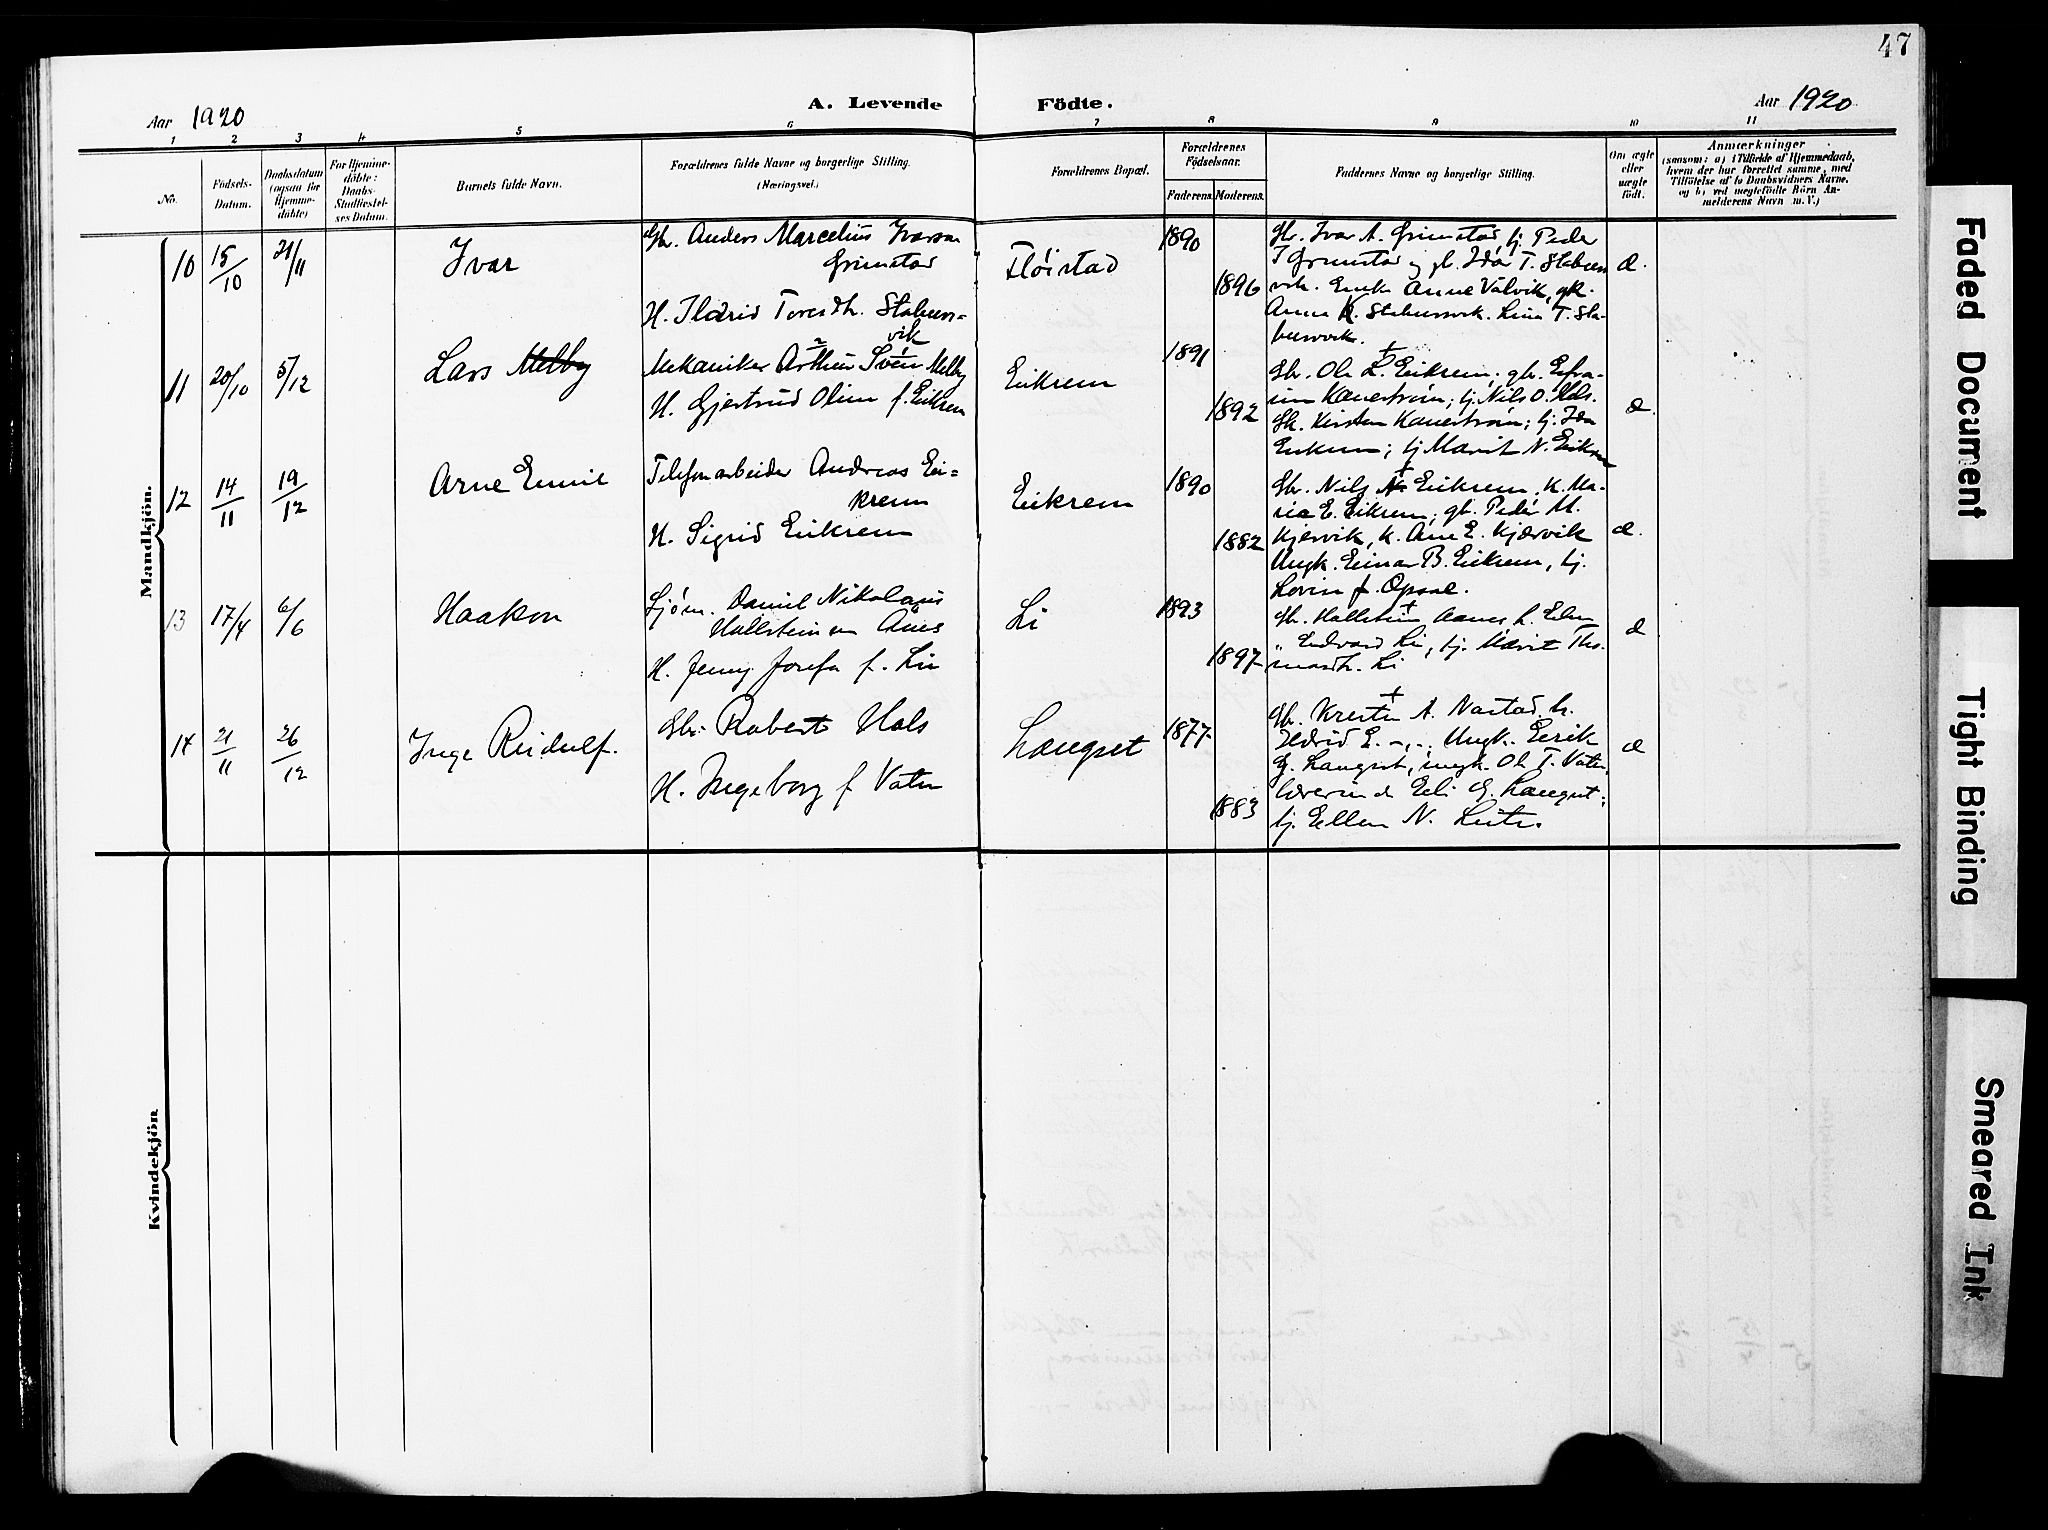 47
Aar 1920
A. Levende Födte.
Aar 1920
1 2 3 4 5 6 7 8 9 10 11
No.
Födsels-
Datum.
Daabsdatum
(ogsaa for
Hjemme-
döbte)
For Hjemme-
döbte:
Daabs-
Stadfæstel-
ses Datum.
Barnets fulde Navn.
Forældrenes fulde Navne og borgerlige Stilling.
(Næringsvei.)
Forældrenes Bopæl.
Forældrenes
Födselsaar.
Faderens. Moderens.
Faddernes Navne og borgerlige Stilling.
Om ægte
eller
uægte
födt.
Anmærkninger
(saasom: a) i Tilfælde af Hjemmedaab,
hvem der har forrettet samme, med
Tilföielse af to Daabsvidners Navne.
og b) ved uægtefödte Börn An-
melderens Navn m. V.)
Mandkjön.
10
15/10
21/11
Ivar
Gbr. Anders Marcelius Ivarsen
Grimstad
H. Ildrid Toresdtr. Stabens-
vik
Flöistad
1890
1896
Gbr. Ivar A. Grimstad, tj. Peder
I Grimstad og gb. Ida T. Staben
vik. Enke AnneVálvik, gk.
Anna K. Stabensvik. Lina T. Sta-
bensvik.
æ.
11
20/10
5/12
Lars Melby
Mekaniker Arthur Sven Melby
H. Gjertrud Oline f. Eikrem
Eikrem
1891
1892
Gbr. Ole L. Eikrem; gb. Efra-
im Kanestrøm; tj. Nils O. Hals.
Gk. Kirsten Kanestrøm; tj. Ida
Eikrem; tj Marit N. Eikrem
æ.
12
14/11
19/12
Arne Emil
Telefonarbeider Andreas Ei-
krem
H. Sigrid Eikrem
Eikrem
1890
1882
Gbr. Nils N Eikrem, K. Ma-
rie E. Eikrem, gb. Peder M.
Kjervik, K. Ane E. Kjærvik
Ungk. Einar B. Eikrem, tj.
Lovise f. Opsal.
æ.
13
17/4
6/6
Haakon
Sjöm. Daniel Nikolaus
Hallsteinsen Aanes
H. Jenny Josefa f. Lie
Li
1893
1897
Gbr. Hallstein Aanes h. Elen
" Edvard Li, tj. Marit Tho-
masdtr. Li
æ
14
21/11
26/12
Inge Reidulf.
Gbr. Robert Hals
H. Ingeborg f Vatn
Langset
1877
1883
Gbr. Kresten A. Nastad, h.
Ildrid E. -,-. Ungk. Eirik
G. Langset, ungk. Ole T. Vatn,
lærerinde Eli G. Langset;
tj. Ellen N. Leite.
æ
Kvindekjön
Faded Document
Tight Binding
Smeared Ink